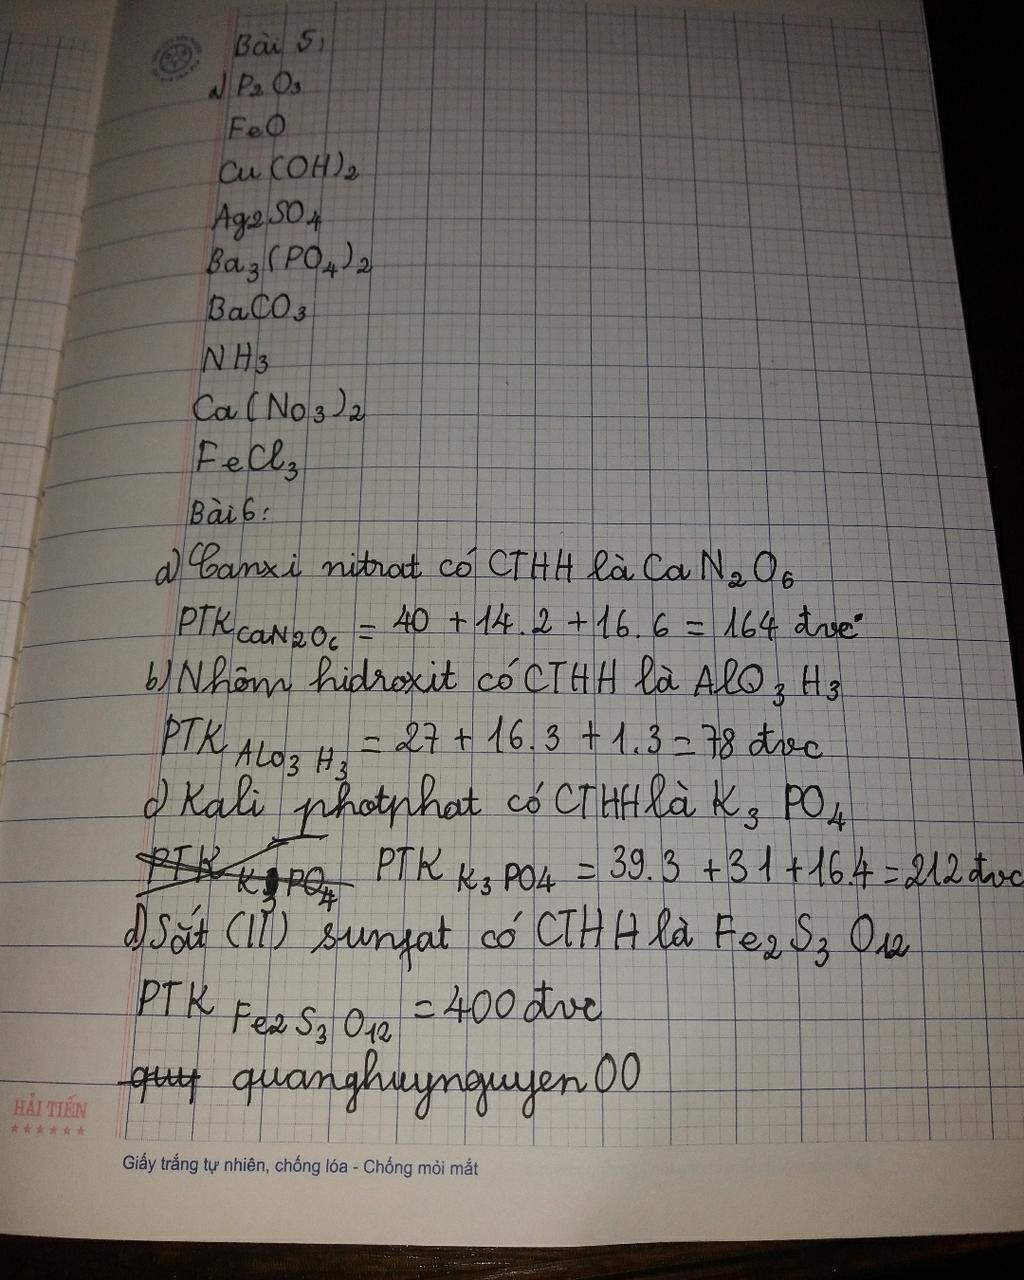 Bài 5,
a) P2O3
FeO
Cu(OH)2
Ag2SO4
Ba3(PO4)2
BaCO3
NH3
Ca(No3)2
FeCl3
Bài 6:
a) Canxi nitrat có CTHH là CaN2O6
PTK CaN2O6 = 40 + 14.2 + 16.6 = 164 đvc
b) Nhôm hidroxit có CTHH là AlO3H3
PTK AlO3H3 = 27 + 16.3 + 1.3 = 78 đvc
c) Kali photphat có CTHH là K3PO4
PTK K3PO4 PTK K3PO4 = 39.3 + 31 + 16.4 = 212 đvc
d) Sắt (II) sunfat có CTHH là Fe2S3O12
PTK Fe2S3O12 = 400 đvc
quy quanghuynguyen00
HẢI TIẾN
Giấy trắng tự nhiên, chống lóa - Chống mỏi mắt